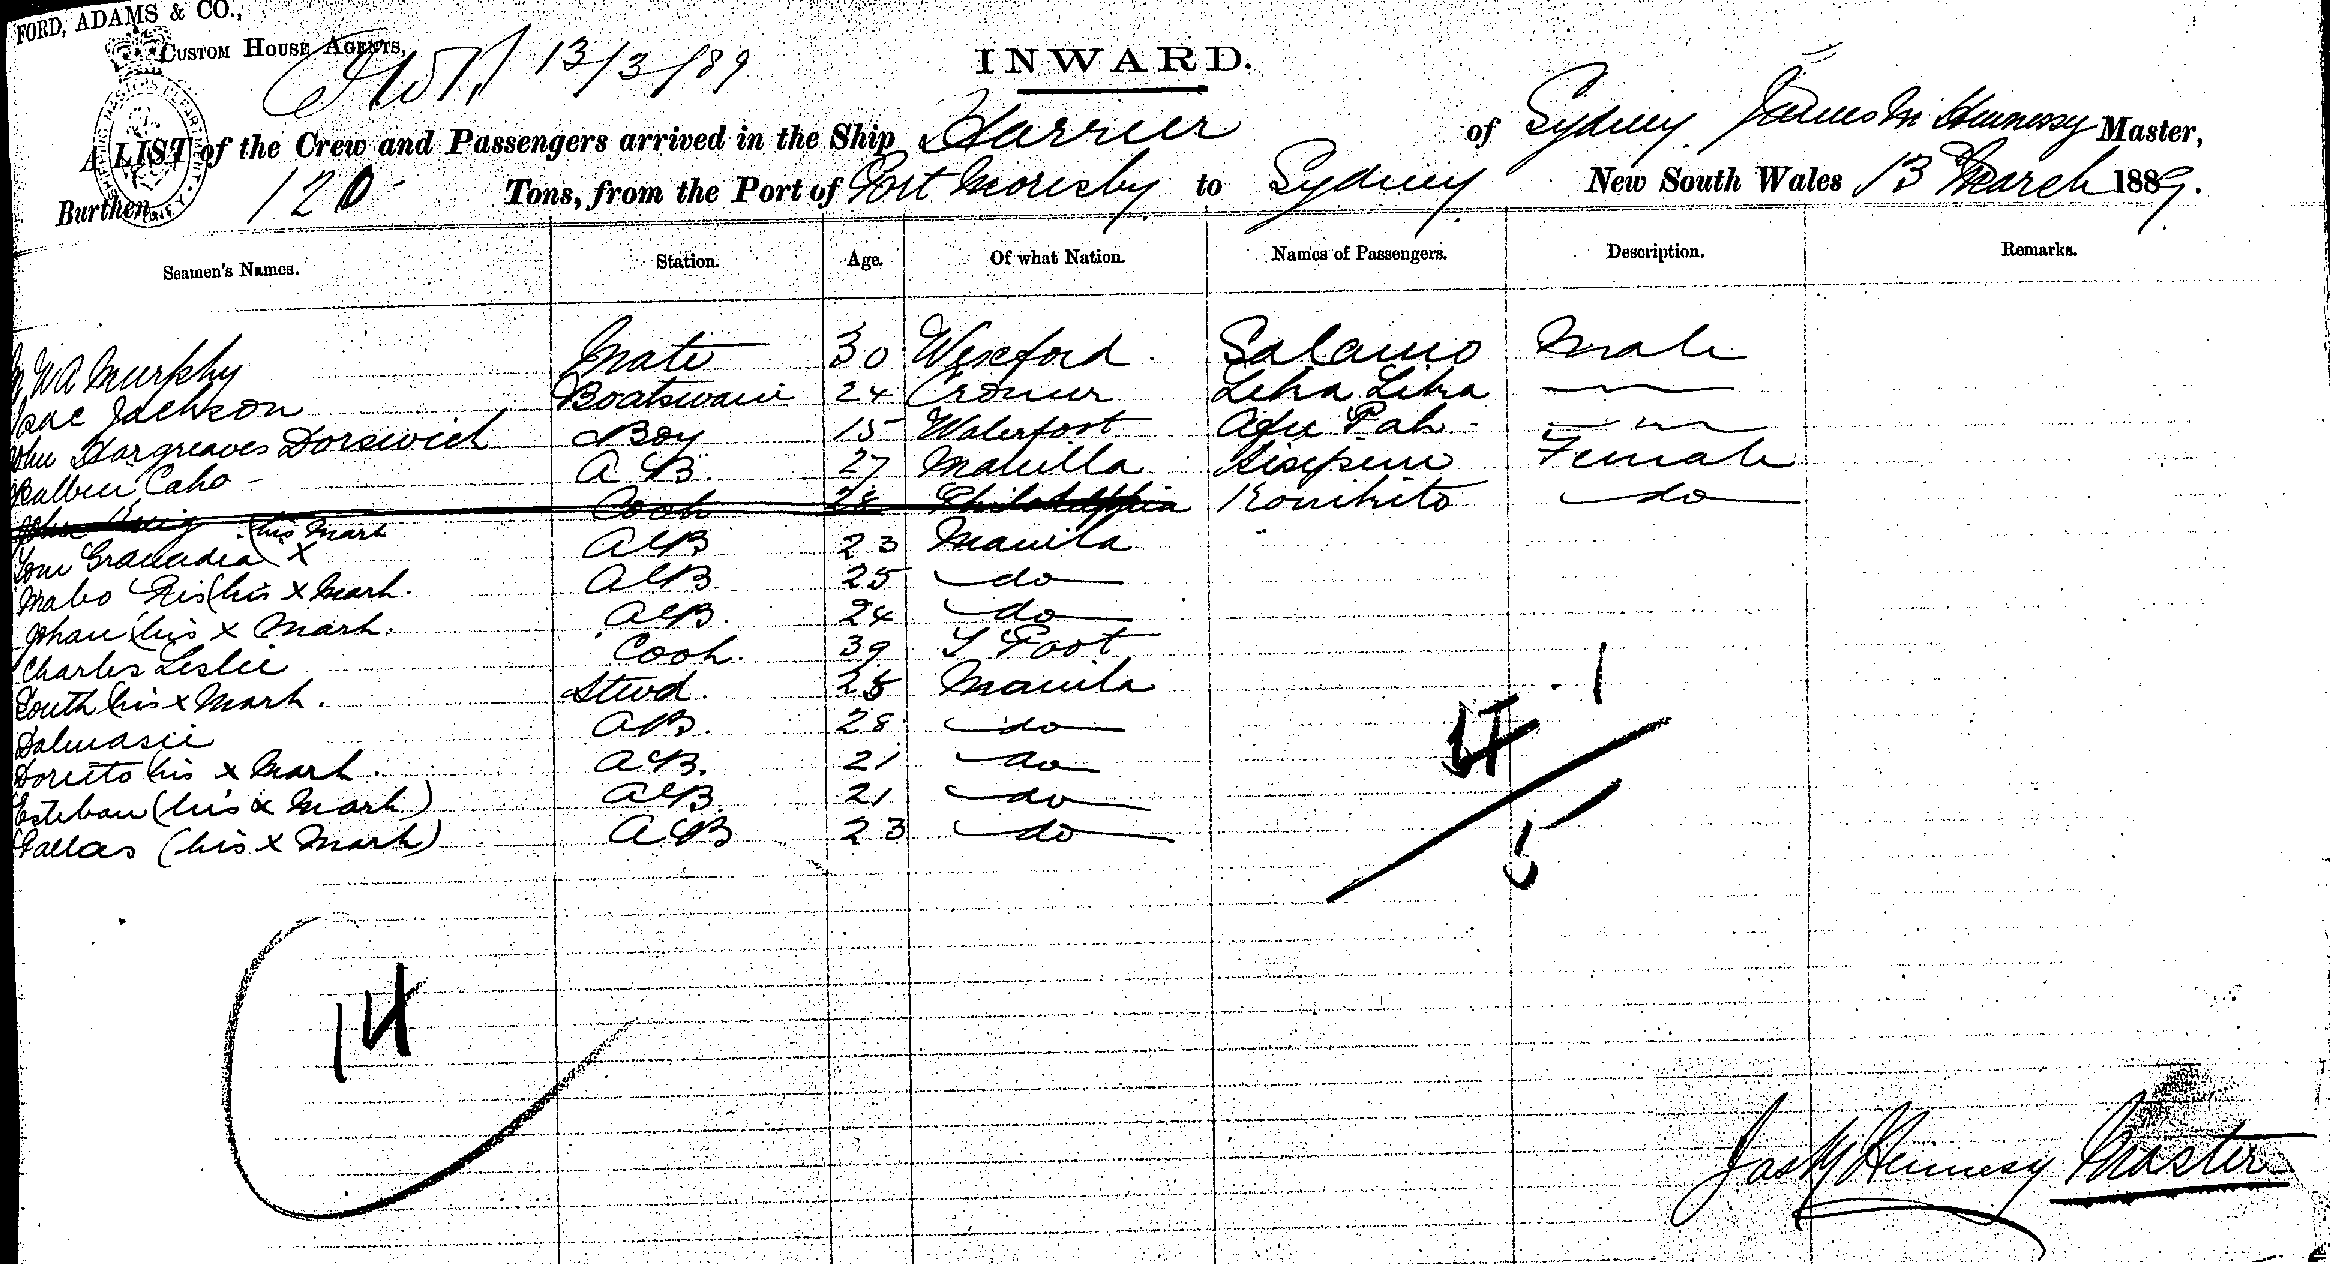 FORD, ADAMS & CO.,
CUSTOM HOUSE AGENTS,
13/3/89
INWARD.
A LIST of the Crew and Passengers arrived in the Ship Harrier of Sydney James M Hennessy Master,
Burthen 120 Tons, from the Port of Port Moresby to Sydney New South Wales 13 March 1889.
Seamen's Names. Station. Age. Of what Nation. Names of Passengers. Description. Remarks.
W A Murphy Mate 30 Wexford Salamo Male
Isac Jackson Boatswain 24 Cromer Leha Leha
John Hargreaves Dorswich Boy 15 Waterfoot Pah
Caho A B. 27 Manilla Female
John Cook 28 Philadelphia do
Tom Granadra (his Mark X AB 23 Manila
Mabo (his x Mark. AB 25 do
Johan (his x Mark. AB. 24 do
Charles Leslie Cook. 39
South (his x Mark. Stwd. 25 Manila
Dalmasie AB. 28 do
Doretto his x Mark. AB. 21 do
Esteban (his x Mark) AB. 21 do
Pallas (his x Mark) AB 23 do
1
5
14
Jas M Hennesy Master